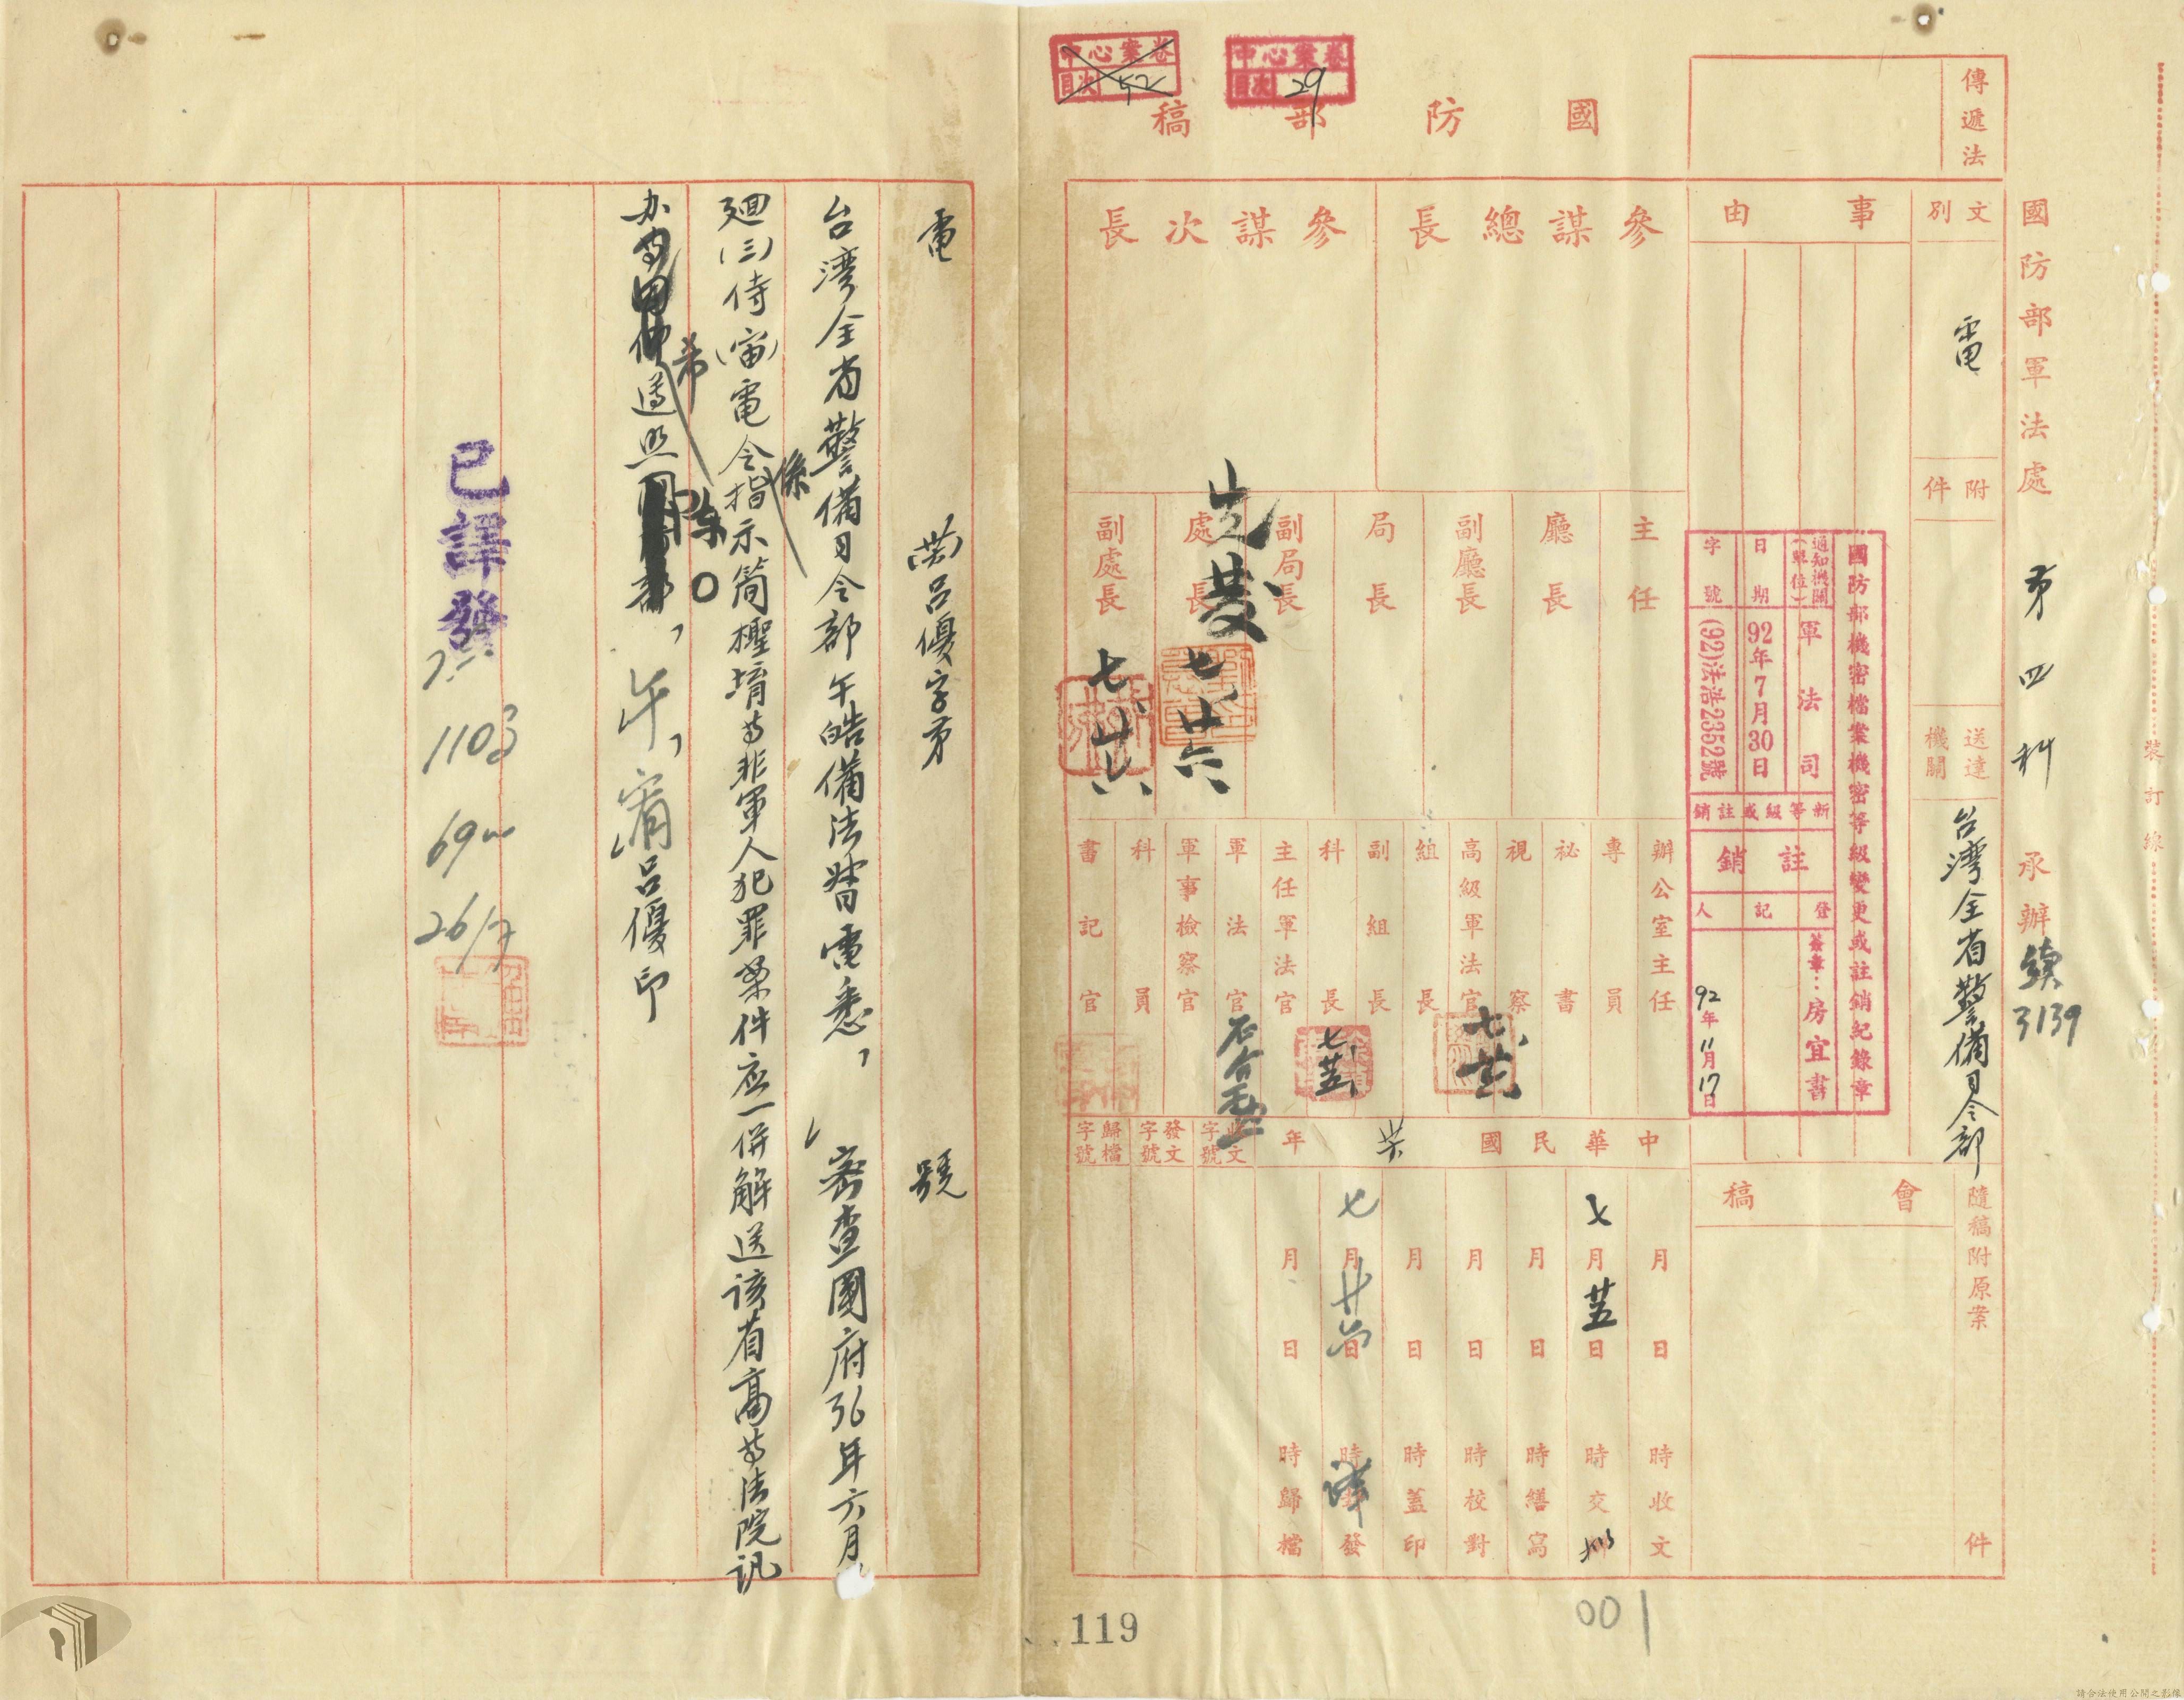 國防部軍法處 第四科 承辦 續3139
裝訂線
傳遞法
文別 電
附件
送達機關 台灣全省警備司令部
隨稿附原案 件
事由
會稿
國防部稿
中心案卷
目次 52
中心案卷
目次 29
國防部機密檔案機密等級變更或註銷紀錄章
通知機關(單位) 軍法司
日期 92年7月30日
字號 (92)法浩2352號
新等級或註銷
註銷
登記人
簽章：房宜書
92年11月17日
參謀總長
參謀次長
主任
廳長
副廳長
局長
副局長
處長
副處長
七、廿六
七、廿六
辦公室主任
專員
祕書
視察
高級軍法官
組長
副組長
科長
主任軍法官
軍法官
軍事檢察官
科員
書記官
中華民國 卅六 年
月 日 時收文
七月廿五日 時交辦
月 日 時繕寫
月 日 時校對
月 日 時蓋印
七月廿六日 時封發
月 日 時歸檔
收文字號
發文字號
歸檔字號
119
001
電 (卅六)呂優字第 號
台灣全省警備司令部午皓備法督電悉，密查國府36年六月
廻(三)侍(宙)電令係指示簡檉堉等非軍人犯罪案件應一併解送該省高等法院訊
办希遵照 午，宥，呂優印
已譯發
1103
69
26/7
請合法使用公開之影像